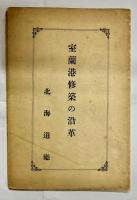 室蘭港修築の沿革
北海道廳